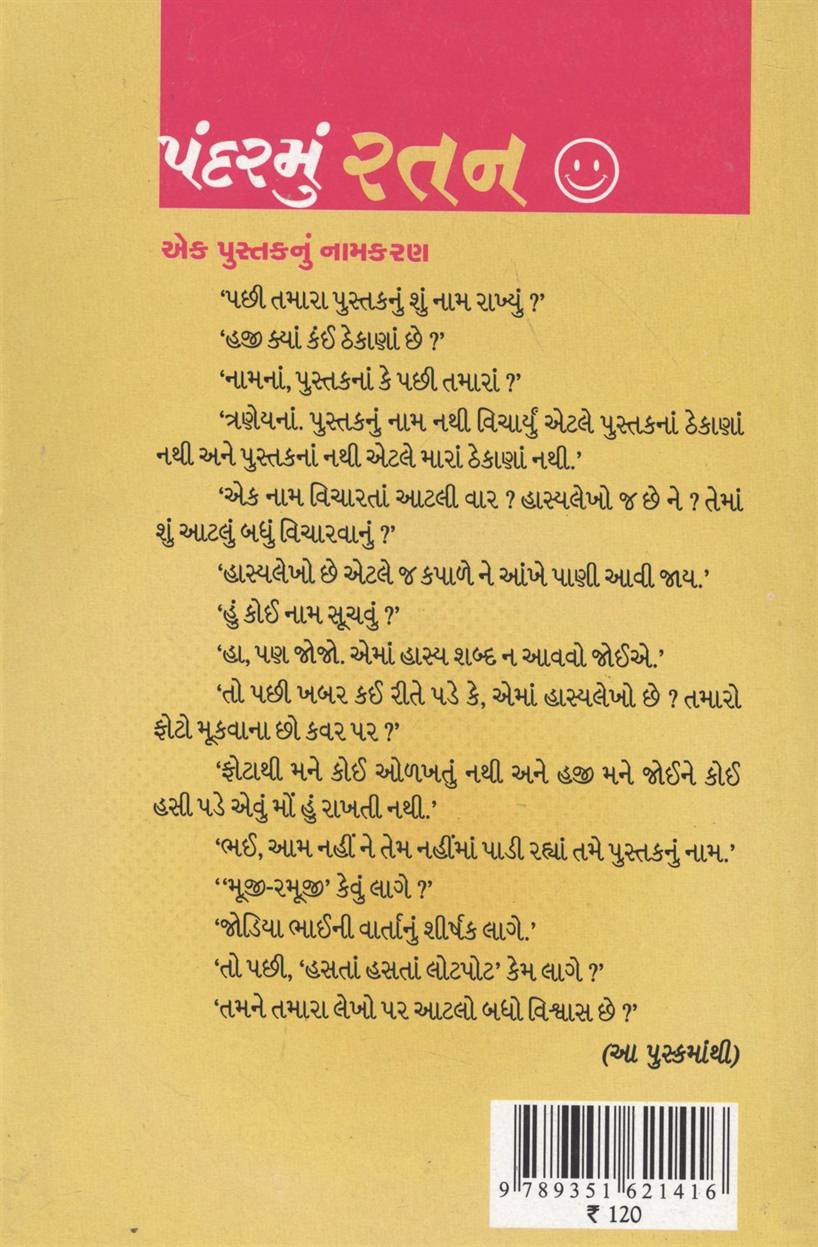 પંદરમું રતન
એક પુસ્તકનું નામકરણ
‘પછી તમારા પુસ્તકનું શું નામ રાખ્યું ?’
‘હજી ક્યાં કંઈ ઠેકાણાં છે ?’
‘નામનાં, પુસ્તકનાં કે પછી તમારાં ?’
‘ત્રણેયનાં. પુસ્તકનું નામ નથી વિચાર્યું એટલે પુસ્તકનાં ઠેકાણાં
નથી અને પુસ્તકનાં નથી એટલે મારાં ઠેકાણાં નથી.’
‘એક નામ વિચારતાં આટલી વાર ? હાસ્યલેખો જ છે ને ? તેમાં
શું આટલું બધું વિચારવાનું ?’
‘હાસ્યલેખો છે એટલે જ કપાળે ને આંખે પાણી આવી જાય.’
‘હું કોઈ નામ સૂચવું ?’
‘હા, પણ જોજો. એમાં હાસ્ય શબ્દ ન આવવો જોઈએ.’
‘તો પછી ખબર કઈ રીતે પડે કે, એમાં હાસ્યલેખો છે ? તમારો
ફોટો મૂકવાના છો કવર પર ?’
‘ફોટાથી મને કોઈ ઓળખતું નથી અને હજી મને જોઈને કોઈ
હસી પડે એવું મોં હું રાખતી નથી.’
‘ભઈ, આમ નહીં ને તેમ નહીંમાં પાડી રહ્યાં તમે પુસ્તકનું નામ.’
‘‘મૂજી-રમૂજી’ કેવું લાગે ?’
‘જોડિયા ભાઈની વાર્તાનું શીર્ષક લાગે.’
‘તો પછી, ‘હસતાં હસતાં લોટપોટ’ કેમ લાગે ?’
‘તમને તમારા લેખો પર આટલો બધો વિશ્વાસ છે ?’
(આ પુસ્કમાંથી)
9 789351 621416
₹ 120